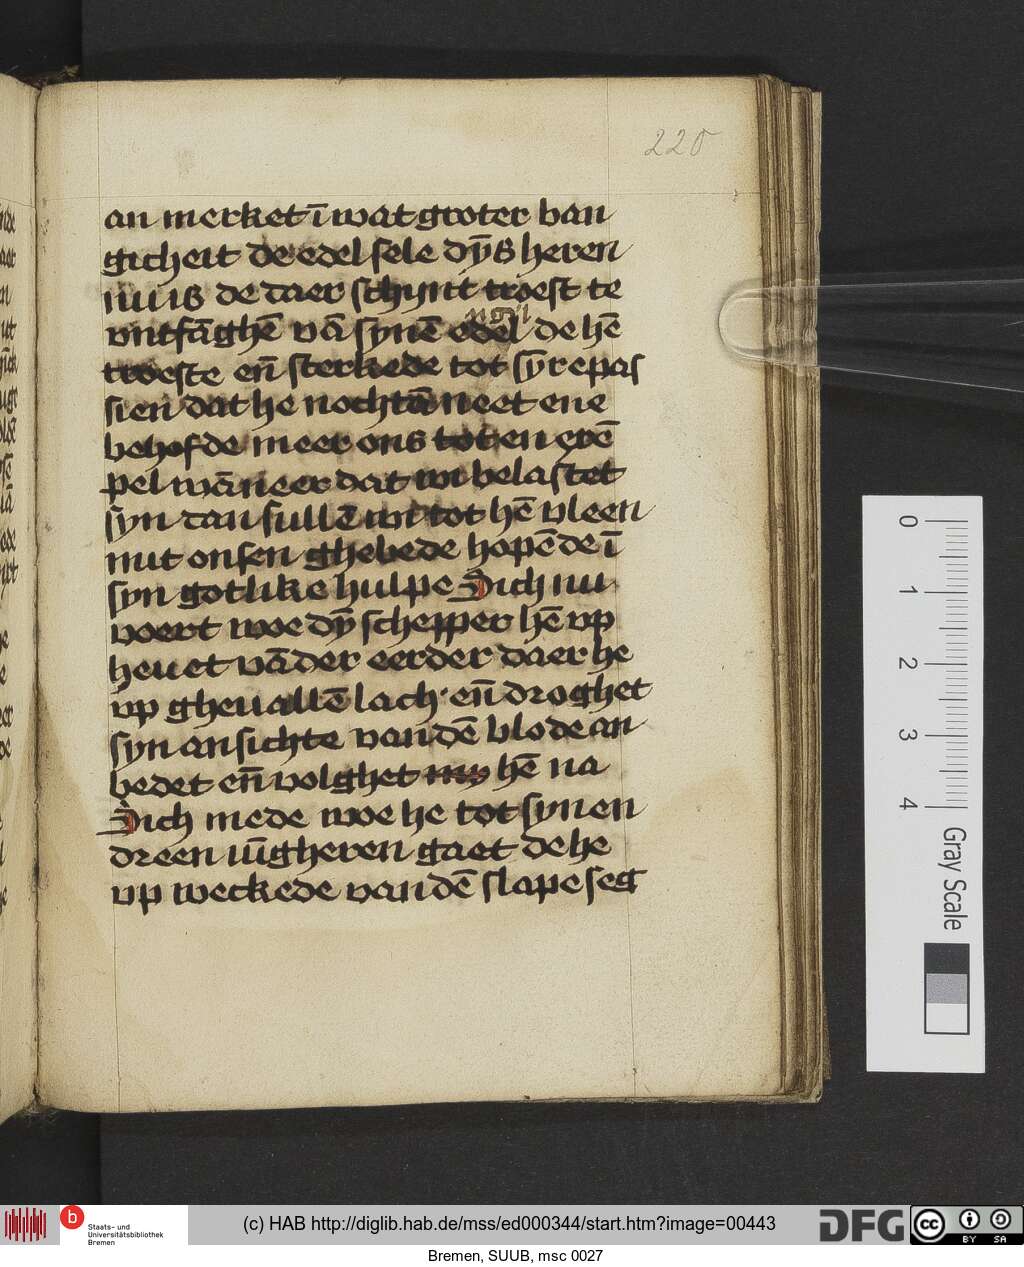 220
an merket ī wat groter ban
gicheit de edel sele dȳs heren
nu is de daer schynt troest te
vntfāghē vā synē edel de hē
ngel
troeste en̄ sterkede tot sȳre pas
sien dat he nochtā neet ene
behofde meer ons tot en exē
pel wāneer dat wi belastet
syn dan sullē wi tot hē vleen
mit onsen ghebede hopēde ī
syn gotlike hulpe Sich nu
voert woe dȳ schepper hē vp
heuet vā der eerder daer he
vp gheuallē lach en̄ droghet
syn ansichte van dē blode an
bedet en̄ volghet my hē na
Sich mede woe he tot synen
dreen iūgheren gaet de he
vp weckede van dē slape seg
0
1
2
3
4
Gray Scale
b
Staats- und
Universitätsbibliothek
Bremen
(c) HAB http://diglib.hab.de/mss/ed000344/start.htm?image=00443
DFG
cc
BY SA
Bremen, SUUB, msc 0027